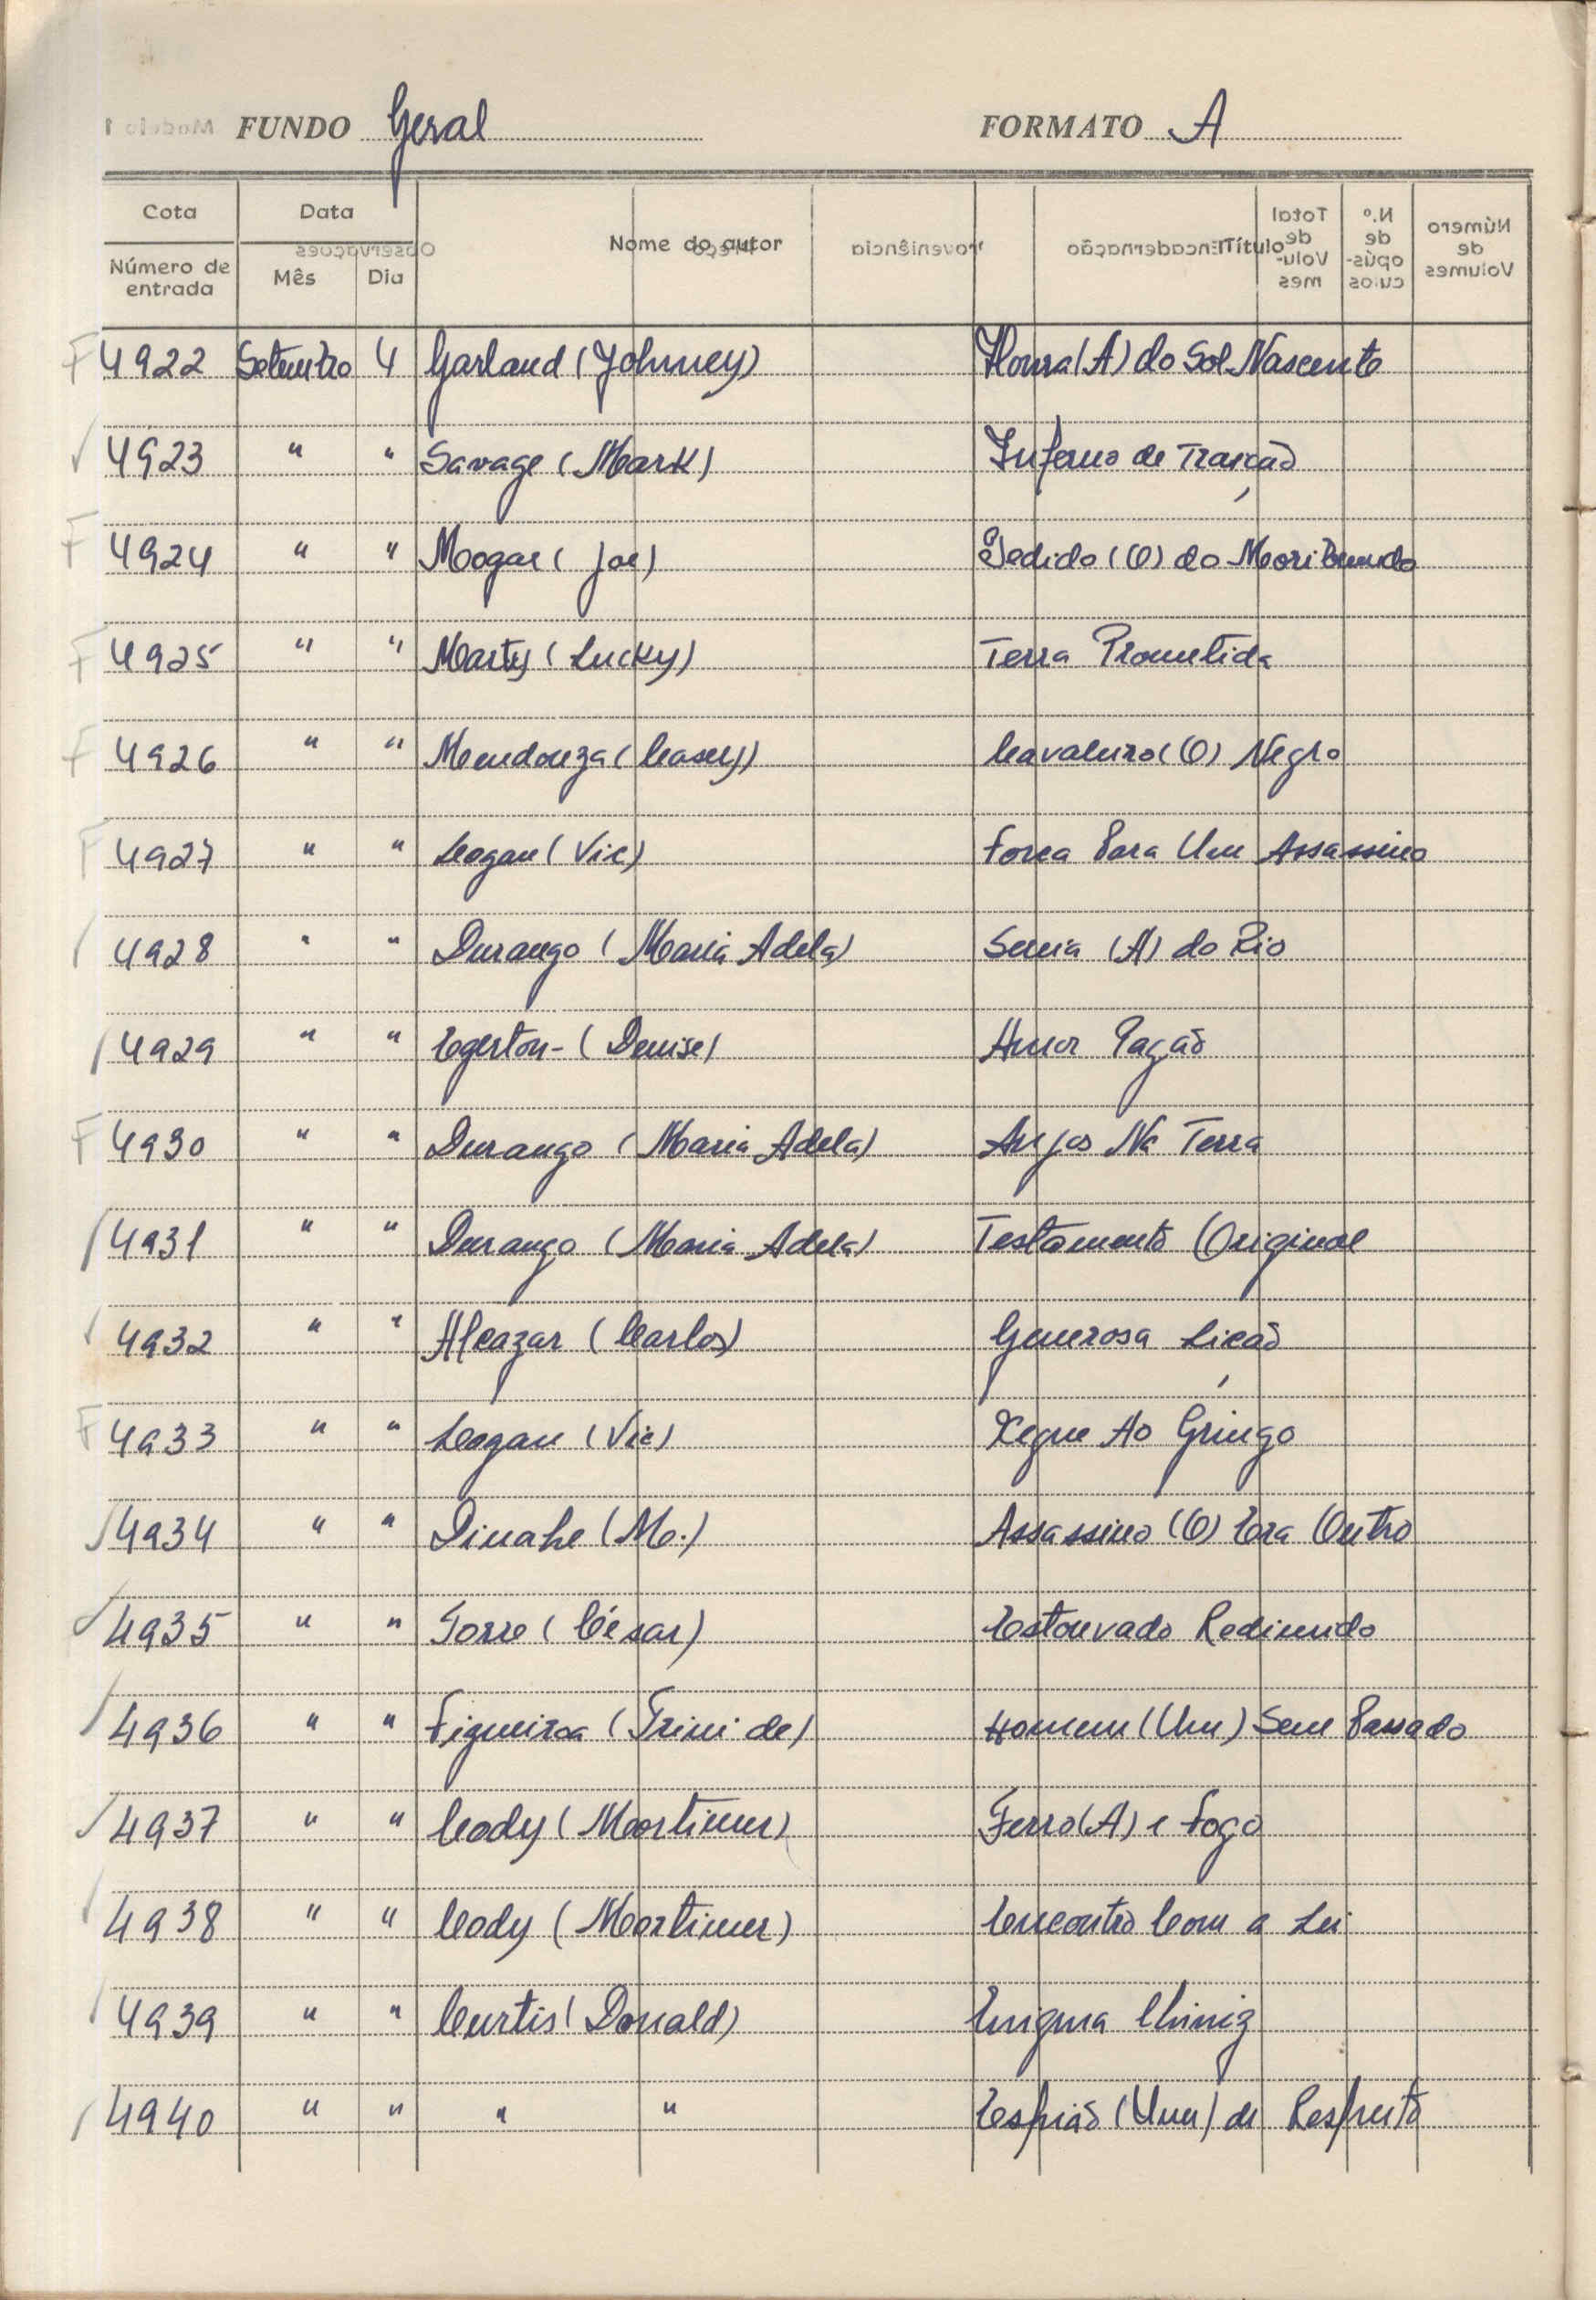 FUNDO Geral FORMATO A
Cota Data Nome do autor Título
Número de entrada Mês Dia
F 4922 Setembro 4 Garland (Johnney) Honra (A) do Sol Nascente
4923 " " Savage (Mark) Inferno de Traição
F 4924 " " Mogar (Joe) Pedido (O) do Moribundo
F 4925 " " Marty (Lucky) Terra Prometida
F 4926 " " Mendouza (Casey) Cavaleiro (O) Negro
F 4927 " " Logan (Vic) Forca Para Um Assassino
4928 " " Durango (Maria Adela) Sereia (A) do Rio
4929 " " Egerton- (Denise) Amor Pagão
F 4930 " " Durango (Maria Adela) Anjos Na Terra
4931 " " Durango (Maria Adela) Testamento Original
4932 " " Alcazar (Carlos) Generosa Lição
F 4933 " " Logan (Vic) Xeque Ao Gringo
4934 " " Dinahe (M.) Assassino (O) Era Outro
4935 " " Torre (César) Estouvado Redimido
4936 " " Figueiroa (Trini de) Homem (Um) Sem Passado
4937 " " Cody (Mortimer) Ferro (A) e Fogo
4938 " " Cody (Mortimer) Encontro Com a Lei
4939 " " Curtis (Donald) Enigma
4940 " " " " Espião (Um) de Respeito